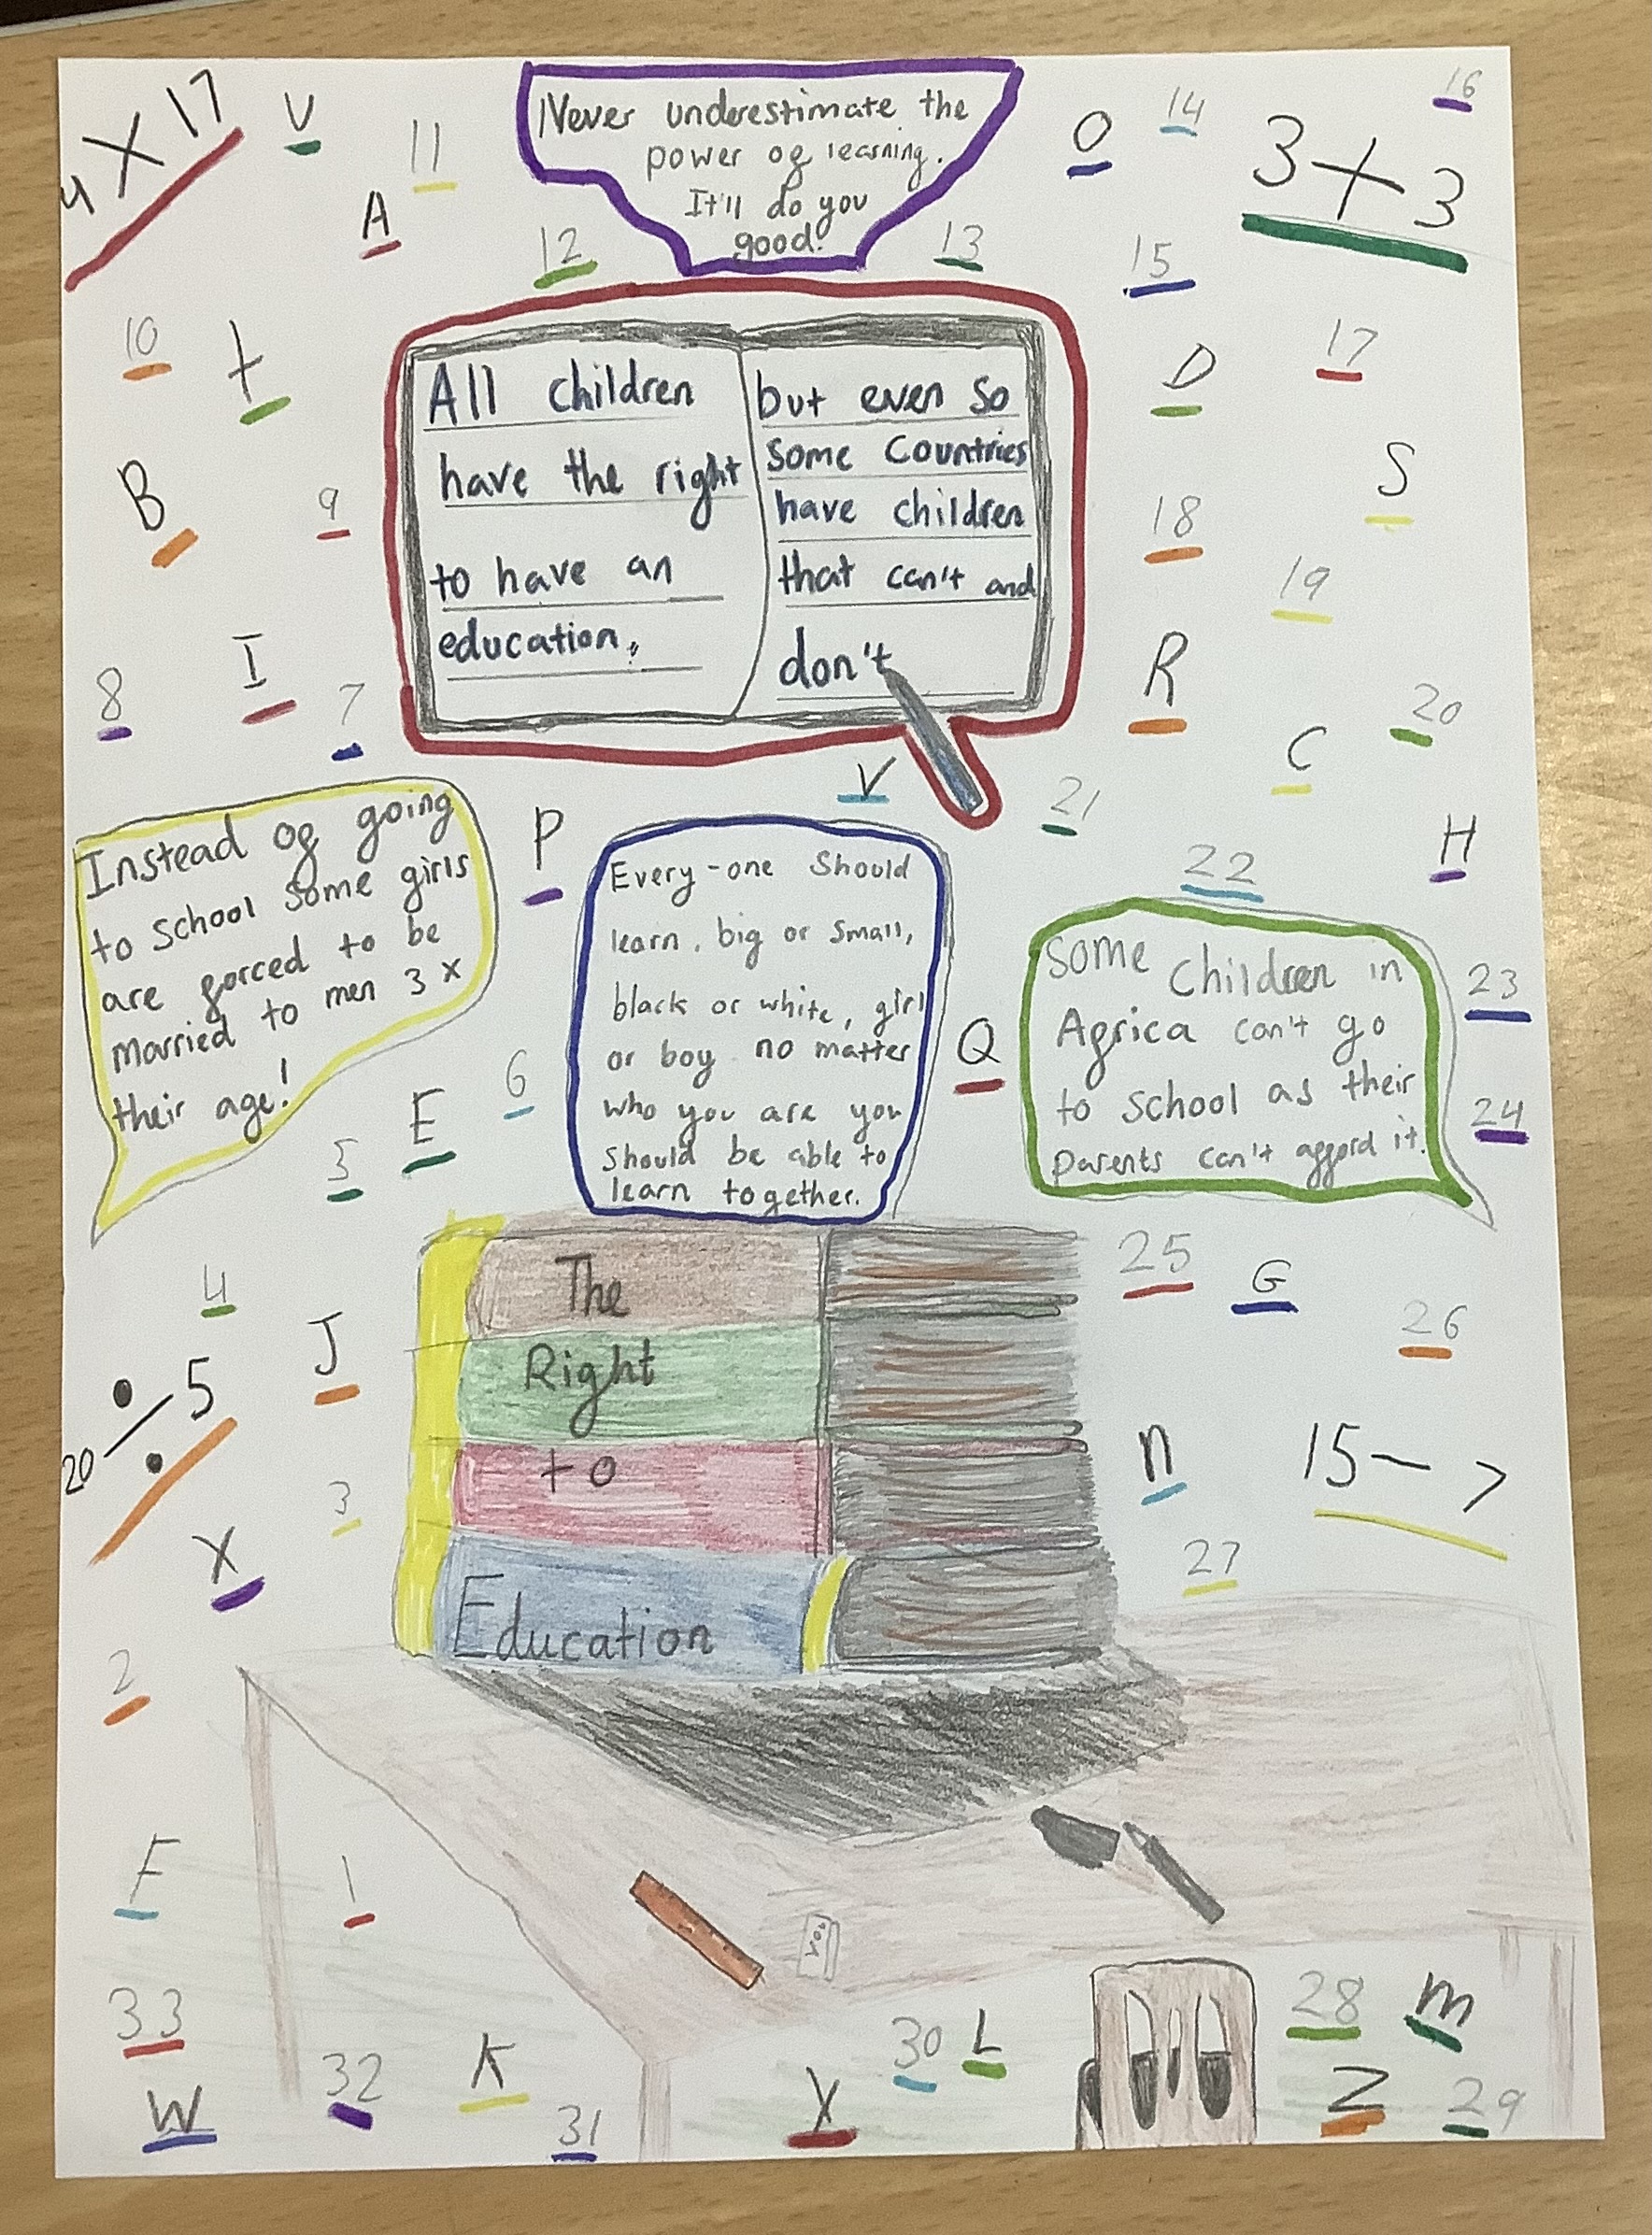 4 X 17
V
11
A
Never underestimate the
power of learning.
It'll do you
good!
O
14
16
3 + 3
12
13
15
10
t
B
9
All children
have the right
to have an
education,
but even so
some countries
have children
that can't and
don't
D
17
S
18
19
I
8
7
R
20
C
V
21
P
H
22
Instead of going
to school some girls
are forced to be
married to men 3 x
their age!
Every-one should
learn, big or small,
black or white, girl
or boy no matter
who you are you
should be able to
learn together.
Q
Some Children in
Africa can't go
to school as their
parents can't afford it.
23
24
6
E
5
The
Right
to
Education
4
J
20 ÷ 5
3
X
2
25
G
26
n
15 - 7
27
F
1
33
W
32
K
31
Y
30
L
28
m
Z
29